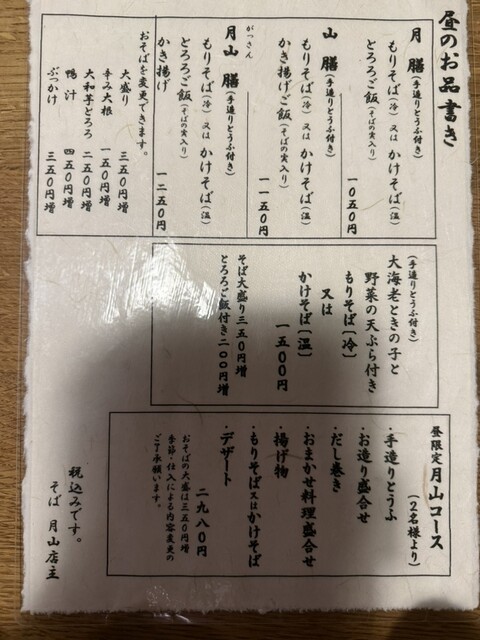 昼のお品書き
月　膳(手造りとうふ付き)
もりそば(冷)又はかけそば(温)
とろろご飯(そばの実入り)
一〇五〇円
山　膳(手造りとうふ付き)
もりそば(冷)又はかけそば(温)
かき揚げご飯(そばの実入り)
一一五〇円
がっさん
月山　膳(手造りとうふ付き)
もりそば(冷)又はかけそば(温)
とろろご飯(そばの実入り)
かき揚げ
一二五〇円
おそばを変更できます。
大盛り　三五〇円増
辛み大根　一五〇円増
大和芋とろろ　二五〇円増
鴨汁　四五〇円増
ぶっかけ　三五〇円増
(手造りとうふ付き)
大海老ときの子と
野菜の天ぷら付き
もりそば(冷)
又は
かけそば(温)
一五〇〇円
そば大盛り三五〇円増
とろろご飯付き二〇〇円増
昼限定 月山コース
(2名様より)
・手造りとうふ
・お造り盛合せ
・だし巻き
・おまかせ料理盛合せ
・揚げ物
・もりそば又はかけそば
・デザート
二九八〇円
おそばの大盛は三五〇円増
季節・仕入による内容変更の
ご了承願います。
税込みです。
そば　月山店主